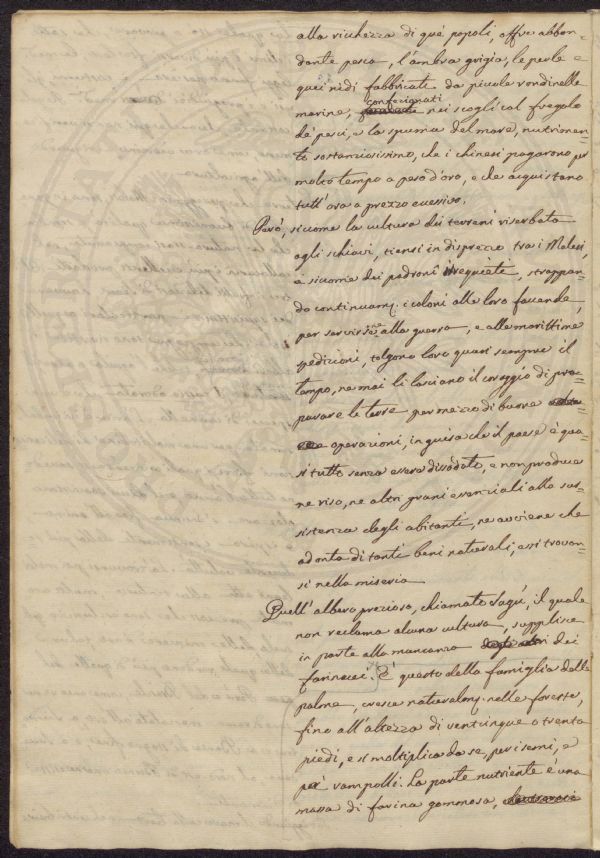 alla ricchezza di que' popoli, offre abbon=
dante pesca, l'ambra grigia, le perle e
quei nidi fabbricati da piccole rondinelle
marine, confezionati nei scogli col fregolo
de' pesci, e la spuma del mare, nutrimen=
to sostanziosissimo, che i chinesi pagarono per
molto tempo a peso d'oro, e che acquistano
tutt'ora a prezzo eccessivo.
Però, siccome la cultura dei terreni riserbata
agli schiavi, tiensi in disprezzo tra i Malesi,
e siccome dei padroni irrequieti, strappan=
do continuam. i coloni alle loro faccende,
per servirsene alla guerra, e alle marittime
spedizioni, tolgono loro quasi sempre il
tempo, ne mai li lasciano il coraggio di pre=
parare le terre per mezzo di buone
operazioni, in guisa che il paese è qua=
si tutto senza essere dissodato, e non produce
ne riso, ne altri grani essenziali alla sus=
sistenza degli abitanti, ne avviene che
ad onta di tanti beni naturali, essi trovan=
si nella miseria
Quell'albero prezioso, chiamato Sagù, il quale
non reclama alcuna cultura, supplisce
in parte alla mancanza dei
farinacei. È questo della famiglia delle
palme, cresce naturalm. nelle foreste,
fino all'altezza di venticinque o trenta
piedi, e si moltiplica da se, per i semi, e
pei rampolli. La parte nutriente è una
massa di farina gommosa,